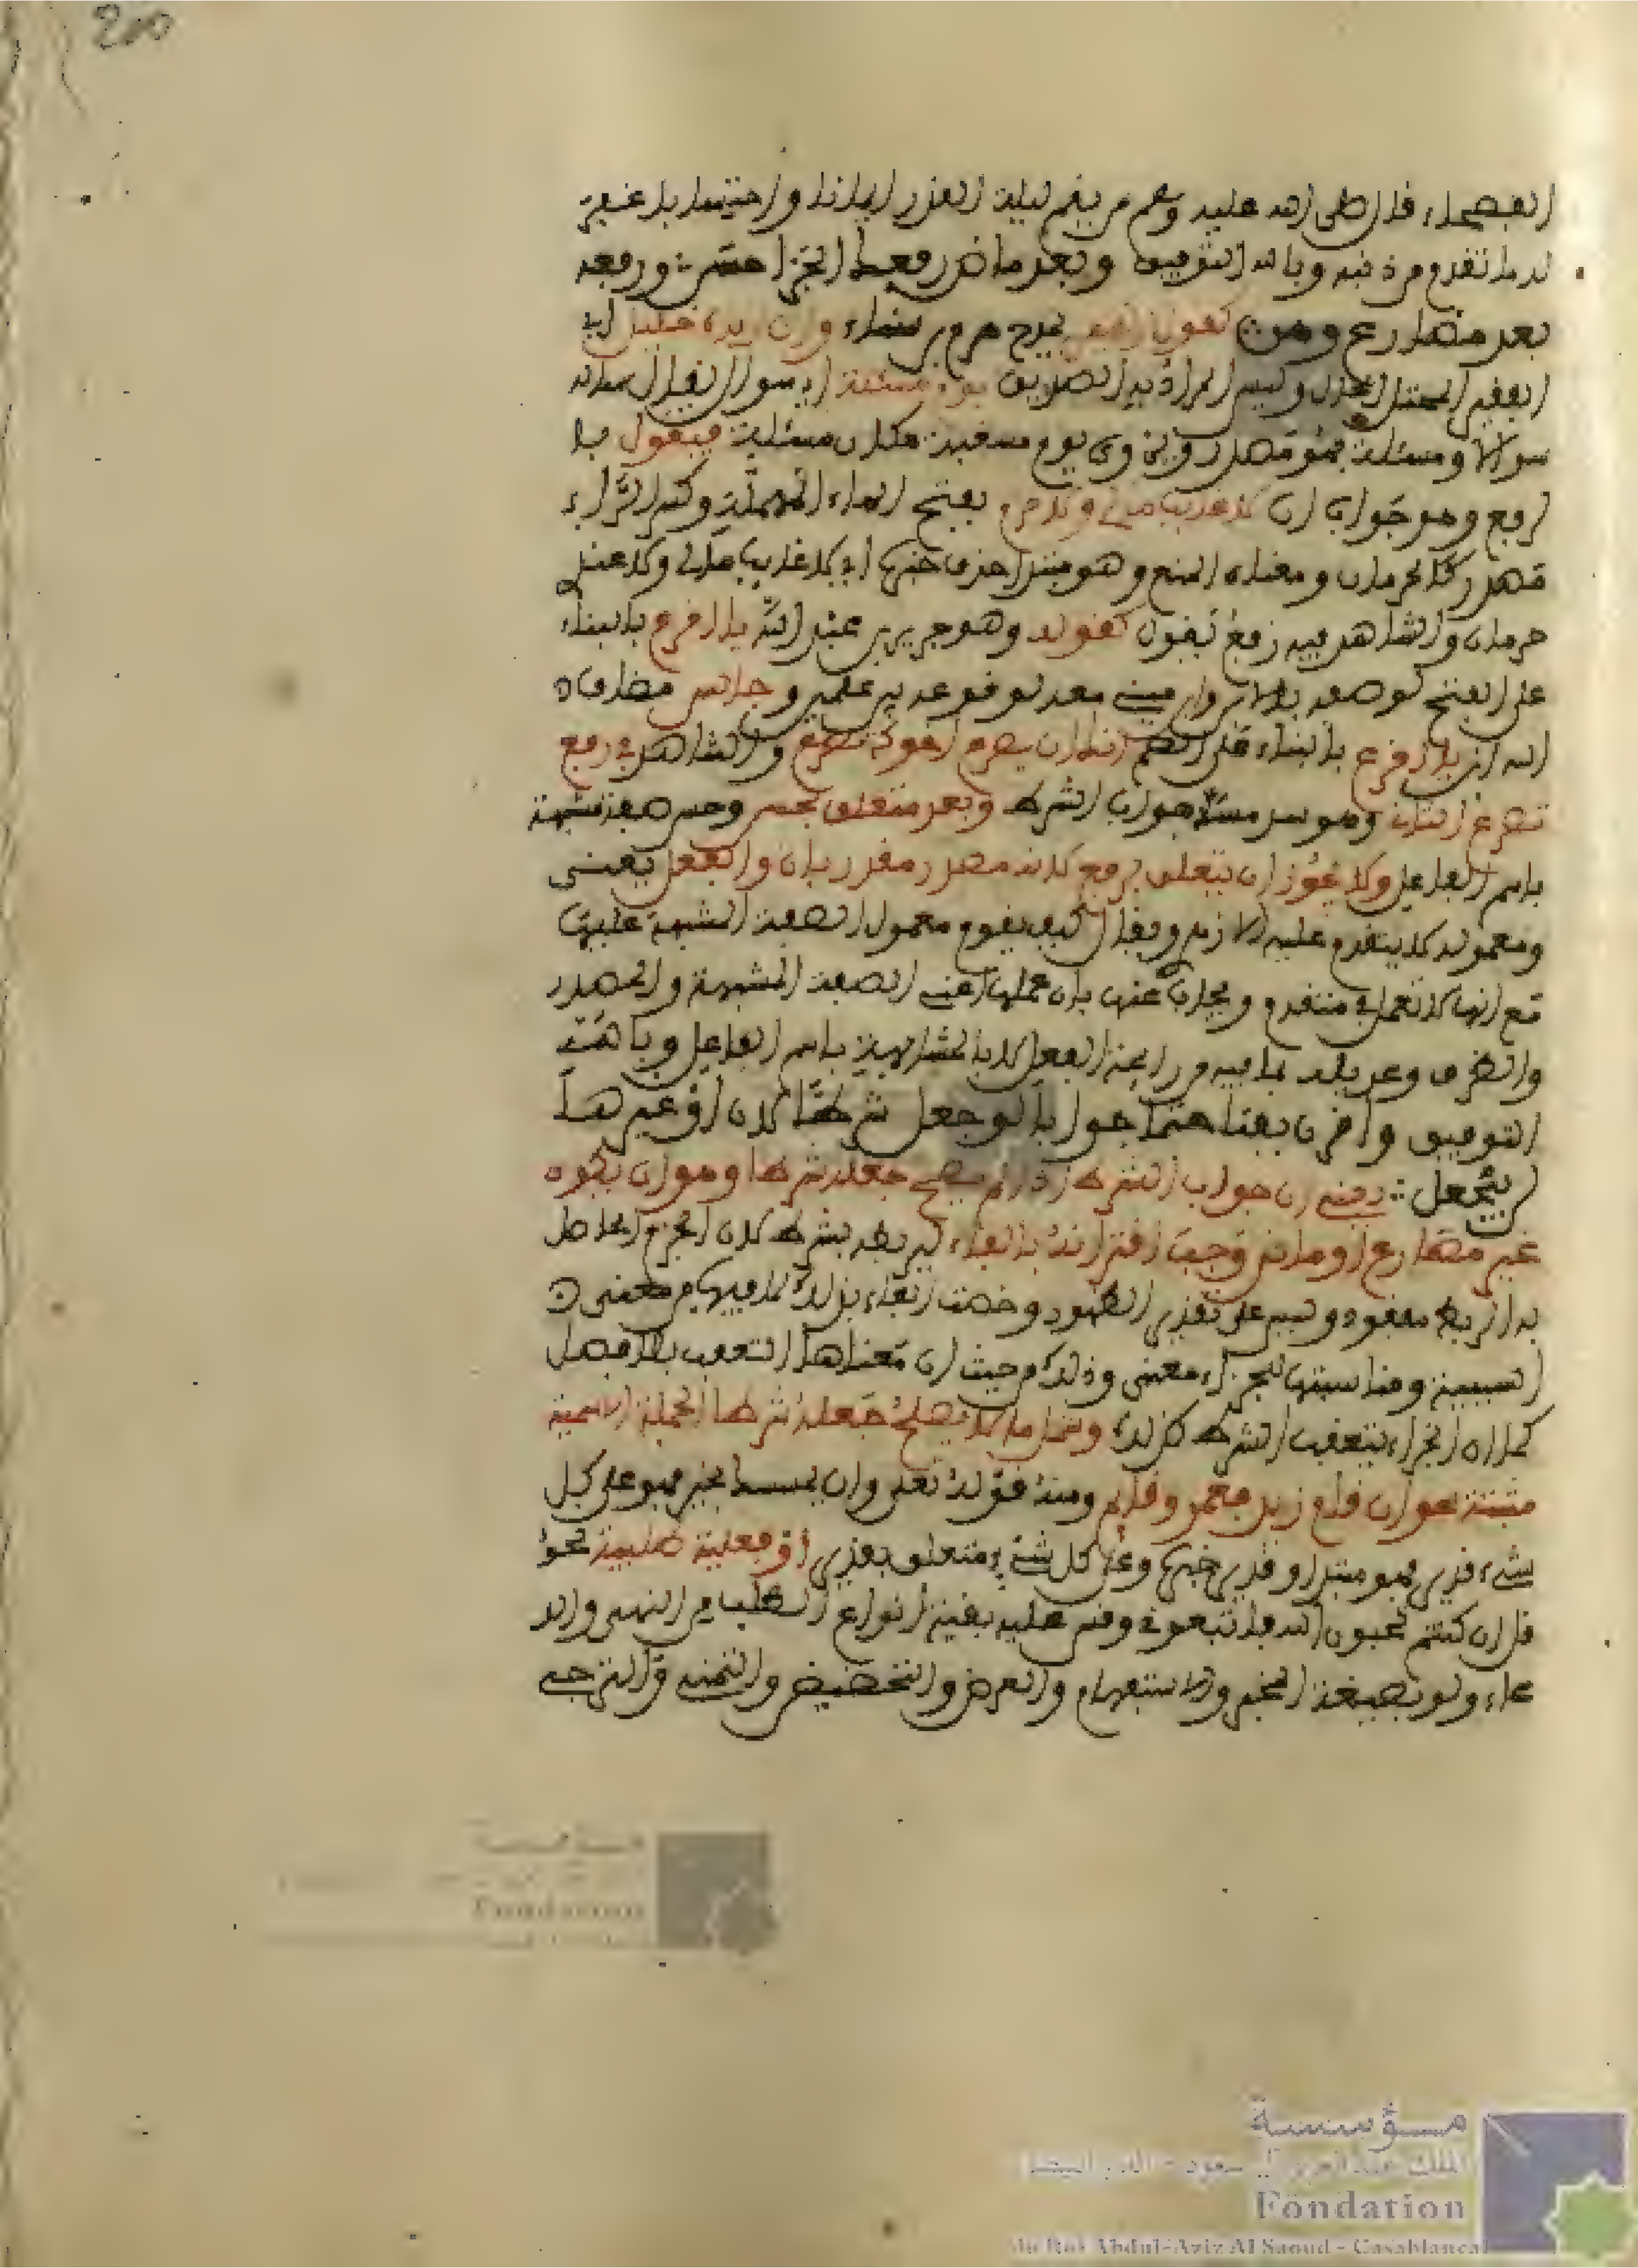 200
الفصحاء، قال صلى الله عليه وسلم من يقم ليلة القدر إيمانا واحتسابا غفر
له ما تقدم من ذنبه وبالله التوفيق وبعد ماض رفعك الجزا حسن ورفعه
بعد مضارع وهن كقول زهير يمدح هرم بن سنان وإن أتاه خليل أي
الفقير المختل الحال وليس المراد به الصديق يوم مسئلة أي سؤال يقال سأله
سؤالا ومسئلة فهو مصدر ويروى يوم مسغبة مكان مسئلة فيقول با
لرفع وهو جواب إن لا غائب مالي ولا حرم بفتح الحاء المهملة وكسر الراء
مصدر كالحرمان ومعناه المنع وهو مبتدأ حذف خبره أي لا غائب مالي ولا عندي
حرمان والشاهد فيه رفع يقول كقوله وهو جرير بن عبد الله يا أقرع بالبناء
على الفتح لوصفه بالابن وابن فيه نعت لوقوعه بين علمين وحابس مضاف
إليه ابن يا أقرع بالبناء على الضم إنك إن يصرع أخوك تصرع والشاهد في رفع
تصرع الثاني وهو سد مسد جواب الشرط وبعد متعلق بحسن وحسن صفة مشبهة
باسم الفاعل ولا يجوز أن يتعلق برفع لأنه مصدر مقدر بأن والفعل يعني
ومعموله لا يتقدم عليه إلا أنه ويقال كيف يقدم معمول الصفة المشبهة عليها
مع أنها لا تعمل في متقدم ويجاب عنه بأن عملها أعني الصفة المشبهة والمصدر
والظرف وعديله بما فيه من رائحة الفعل لا بالمشابهة باسم الفاعل وبالله
التوفيق واقرن بفا حتما جوابا لو جعل شرطا لإن أو غيرها
لم ينجعل يعني أن جواب الشرط إذا لم يصلح جعله شرطا وهو أن يكون
غير مضارع أو ماض وجب اقترانه بالفاء ليربط بشرطه لأن الجزم الحاصل
به الربط مفقود وليس على تقدير الظهور وخصت الفاء بذلك لما فيها من معنى
السببية ومناسبتها للجزاء معنى وذلك من حيث أن معناها التعقيب بلا فصل
كما أن الجزاء يتعقب الشرط كذلك وشمل ما لا يصلح جعله شرطا الجملة الاسمية
مثبتة نحو إن قام زيد فعمرو قائم ومنه قوله تعلى وإن يمسسك بخير فهو على كل
شيء قدير فهو مبتدأ وقدير خبره وعلى كل شيء متعلق بقدير أو فعلية طلبية نحو
قل إن كنتم تحبون الله فاتبعوني وقس عليه بقية أنواع الطلب من النهي والد
عاء ولو بصيغة الخبر والاستفهام والعرض والتحضيض والتمني والترجي
مؤسسة
الملك عبد العزيز آل سعود - الدار البيضاء
Fondation
du Roi Abdul-Aziz Al Saoud - Casablanca